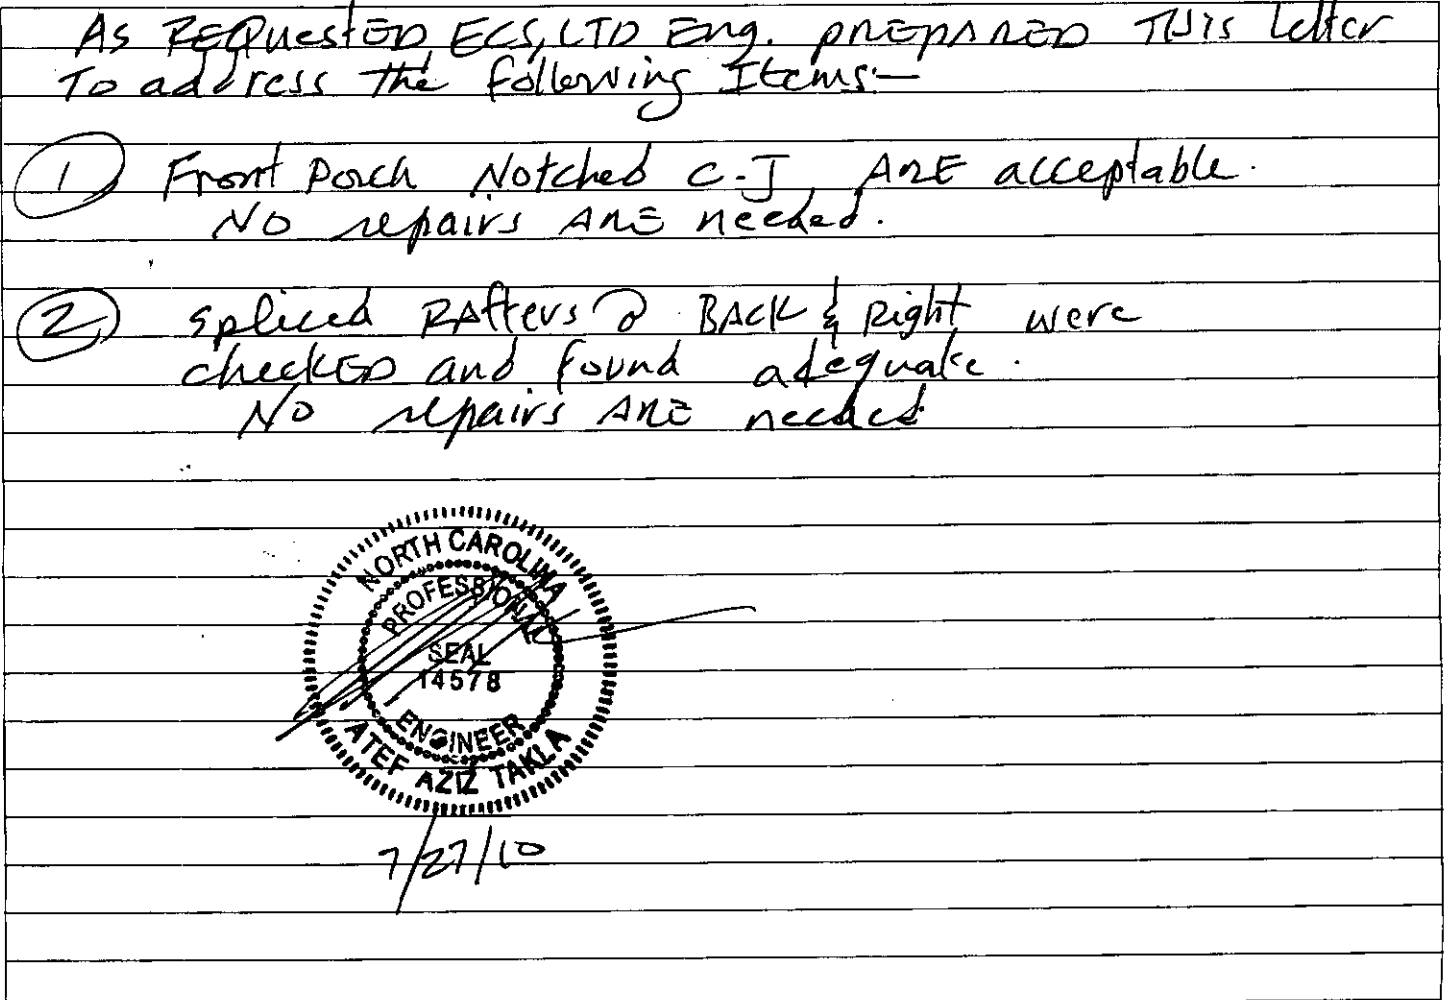 As REQuestED, ECS, LTD Eng. prepARED THis letter
To address the following Items:—
1 Front Porch Notched C.J, ARE acceptable.
NO repairs ARE needed.
2 spliced RAfters @ BACK & Right were
checkED and found adequate.
NO repairs ARE needed
NORTH CAROLINA
PROFESSIONAL
SEAL
14578
ENGINEER
ATEF AZIZ TAKLA
7/27/10